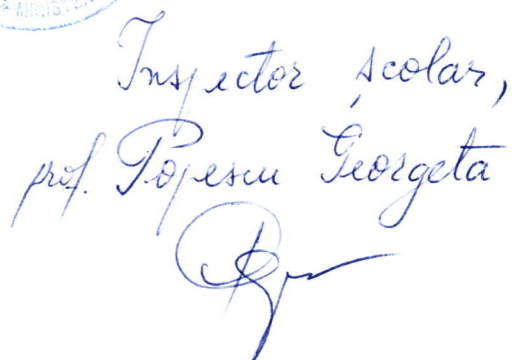 Inspector școlar,
prof. Popescu Georgeta